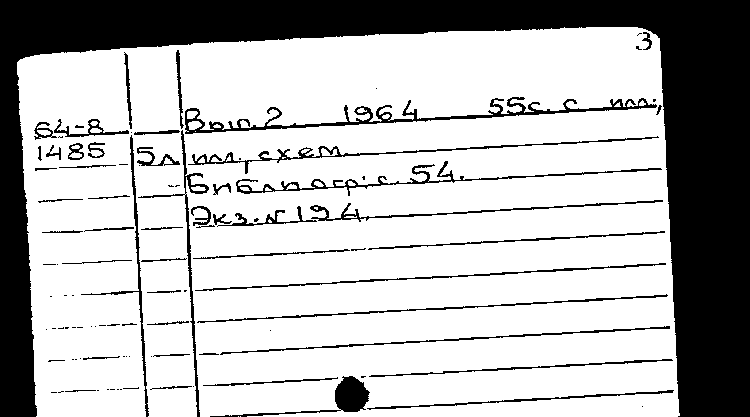 3
64-8 Вып. 2. 1964 55с. с илл.,
1485 5л. илл., схем.
Библиогр: с. 54.
Экз. № 194.